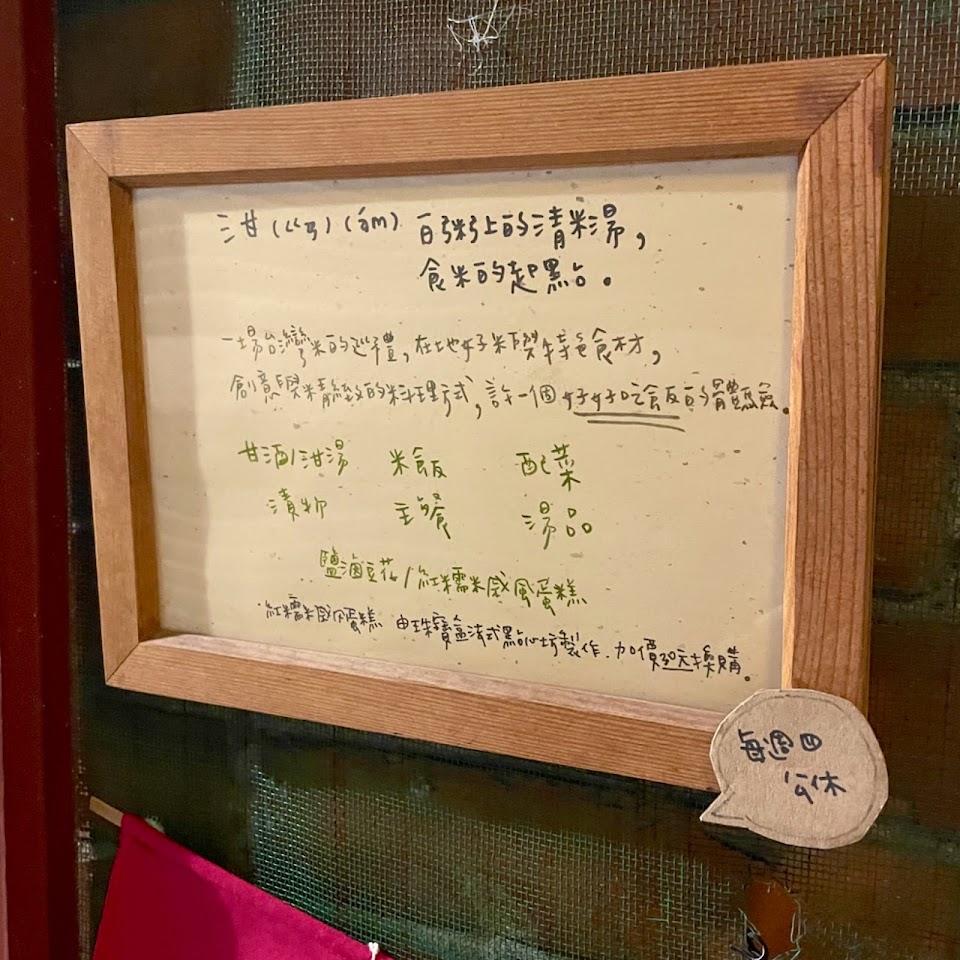 泔(ㄍㄢ)(ám) 白粥上的清米湯,
食米的起點。
一場台灣米的巡禮,在地好米與特色食材,
創意與精緻的料理式,許一個好好吃飯的體驗。
甘酒/泔湯 米飯 配菜
漬物 主餐 湯品
鹽滷豆花/紅糯米戚風蛋糕
紅糯米戚风蛋糕 由珠寶盒法式點心坊製作.加價30元換購。
每週四
公休